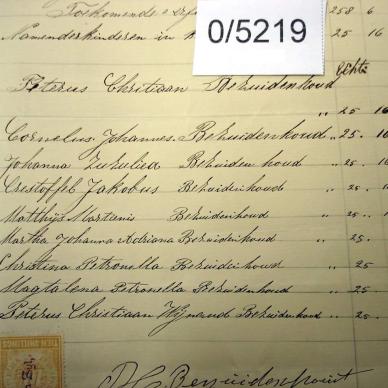 Toekomende 258 6
0/5219
Namenderkinderen in 25 16
Echts
Peterus Christiaan Bezuidenhoud
" 25 16
Cornelius Johannes. Bezuidenhoud " 25. 16
Johanna Bezuidenhoud " 25 16
Crestoffel Jakobus Bezuidenhoud " 25.
Matthijs Martenis Bezuidenhoud " 25
Martha Johanna Adriana Bezuidenhoud " 25
Christina Petronella Bezuidenhoud " 25
Magtalena Petronella Bezuidenhoud " 25
Peterus Christiaan Wijnand Bezuidenhoud " 25.
TIEN SHILLINGS